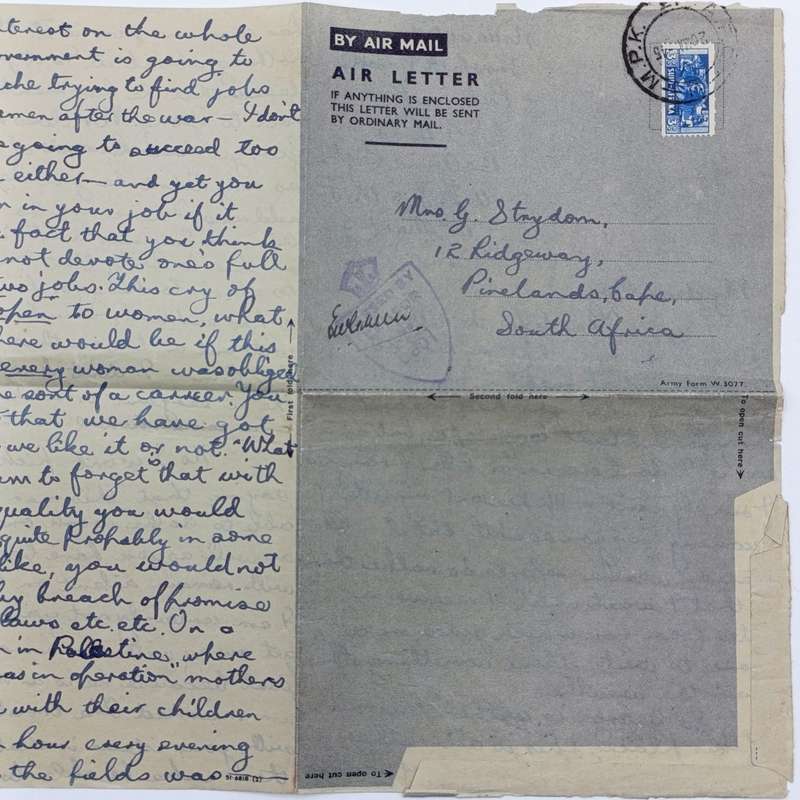 nterest on the whole
overnment is going to
che trying to find jobs
omen after the war — I don't
going to succeed too
either — and yet you
in your job if it
fact that you think
not devote one's full
two jobs. This cry of
open to women, what
here would be if this
every woman was obliged
sort of a career. You
that we have got
we like it or not. "What
m to forget is that with
quality you would
quite probably in some
like, you would not
by breach of promise
laws etc. etc. On a
in Palestine, where
as in operation" mothers
with their children
hour every evening
the fields was —
First fold here
BY AIR MAIL
AIR LETTER
IF ANYTHING IS ENCLOSED
THIS LETTER WILL BE SENT
BY ORDINARY MAIL.
M.P.K.
Mrs. G. Strydom,
12 Ridgeway,
Pinelands, Cape,
South Africa
Army Form W.3077.
Second fold here
To open cut here
To open cut here